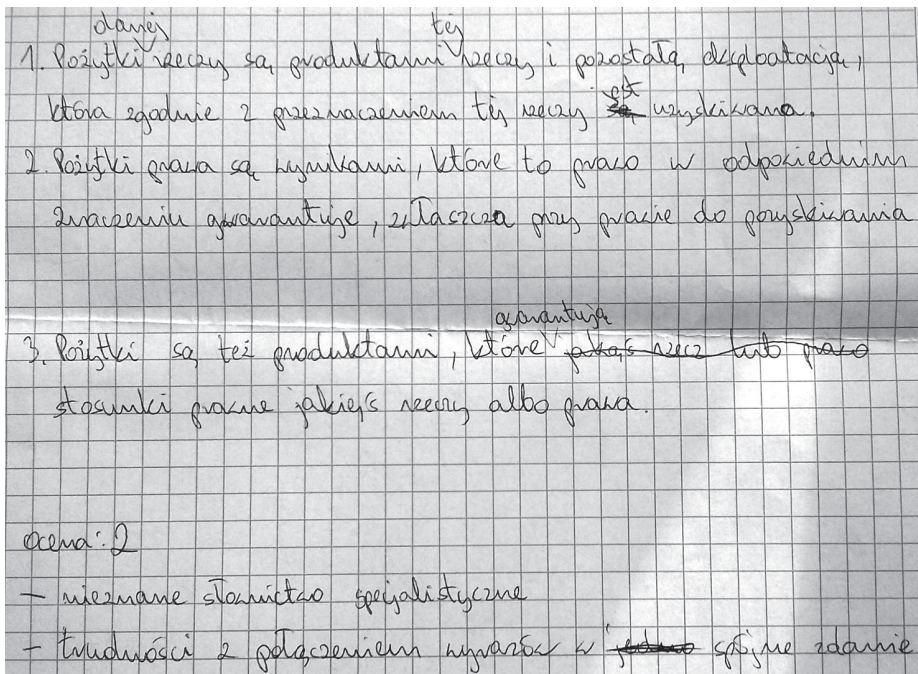 danej tej
1. Pożytki rzeczy są produktami rzeczy i pozostałą eksploatacją,
która zgodnie z przeznaczeniem tej rzeczy są jest uzyskiwana.
2. Pożytki prawa są wynikami, które to prawo w odpowiednim
znaczeniu gwarantuje, zwłaszcza przy prawie do pozyskiwania
gwarantują
3. Pożytki są też produktami, które jakaś rzecz lub prawo
stosunki prawne jakiejś rzeczy albo prawa.
ocena: 2
- nieznane słownictwo specjalistyczne
- trudności z połączeniem wyrazów w jedno spójne zdanie